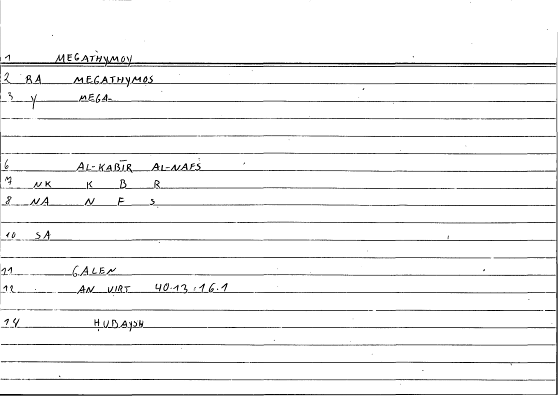 1 MEGATHYMOY
2 RA MEGATHYMOS
3 Y MEGA-
6 AL-KABĪR AL-NAFS
7 NK K B R
8 NA N F S
10 SA
11 GALEN
12 AN VIRT 40.13,16.1
14 ḤUBAYSH